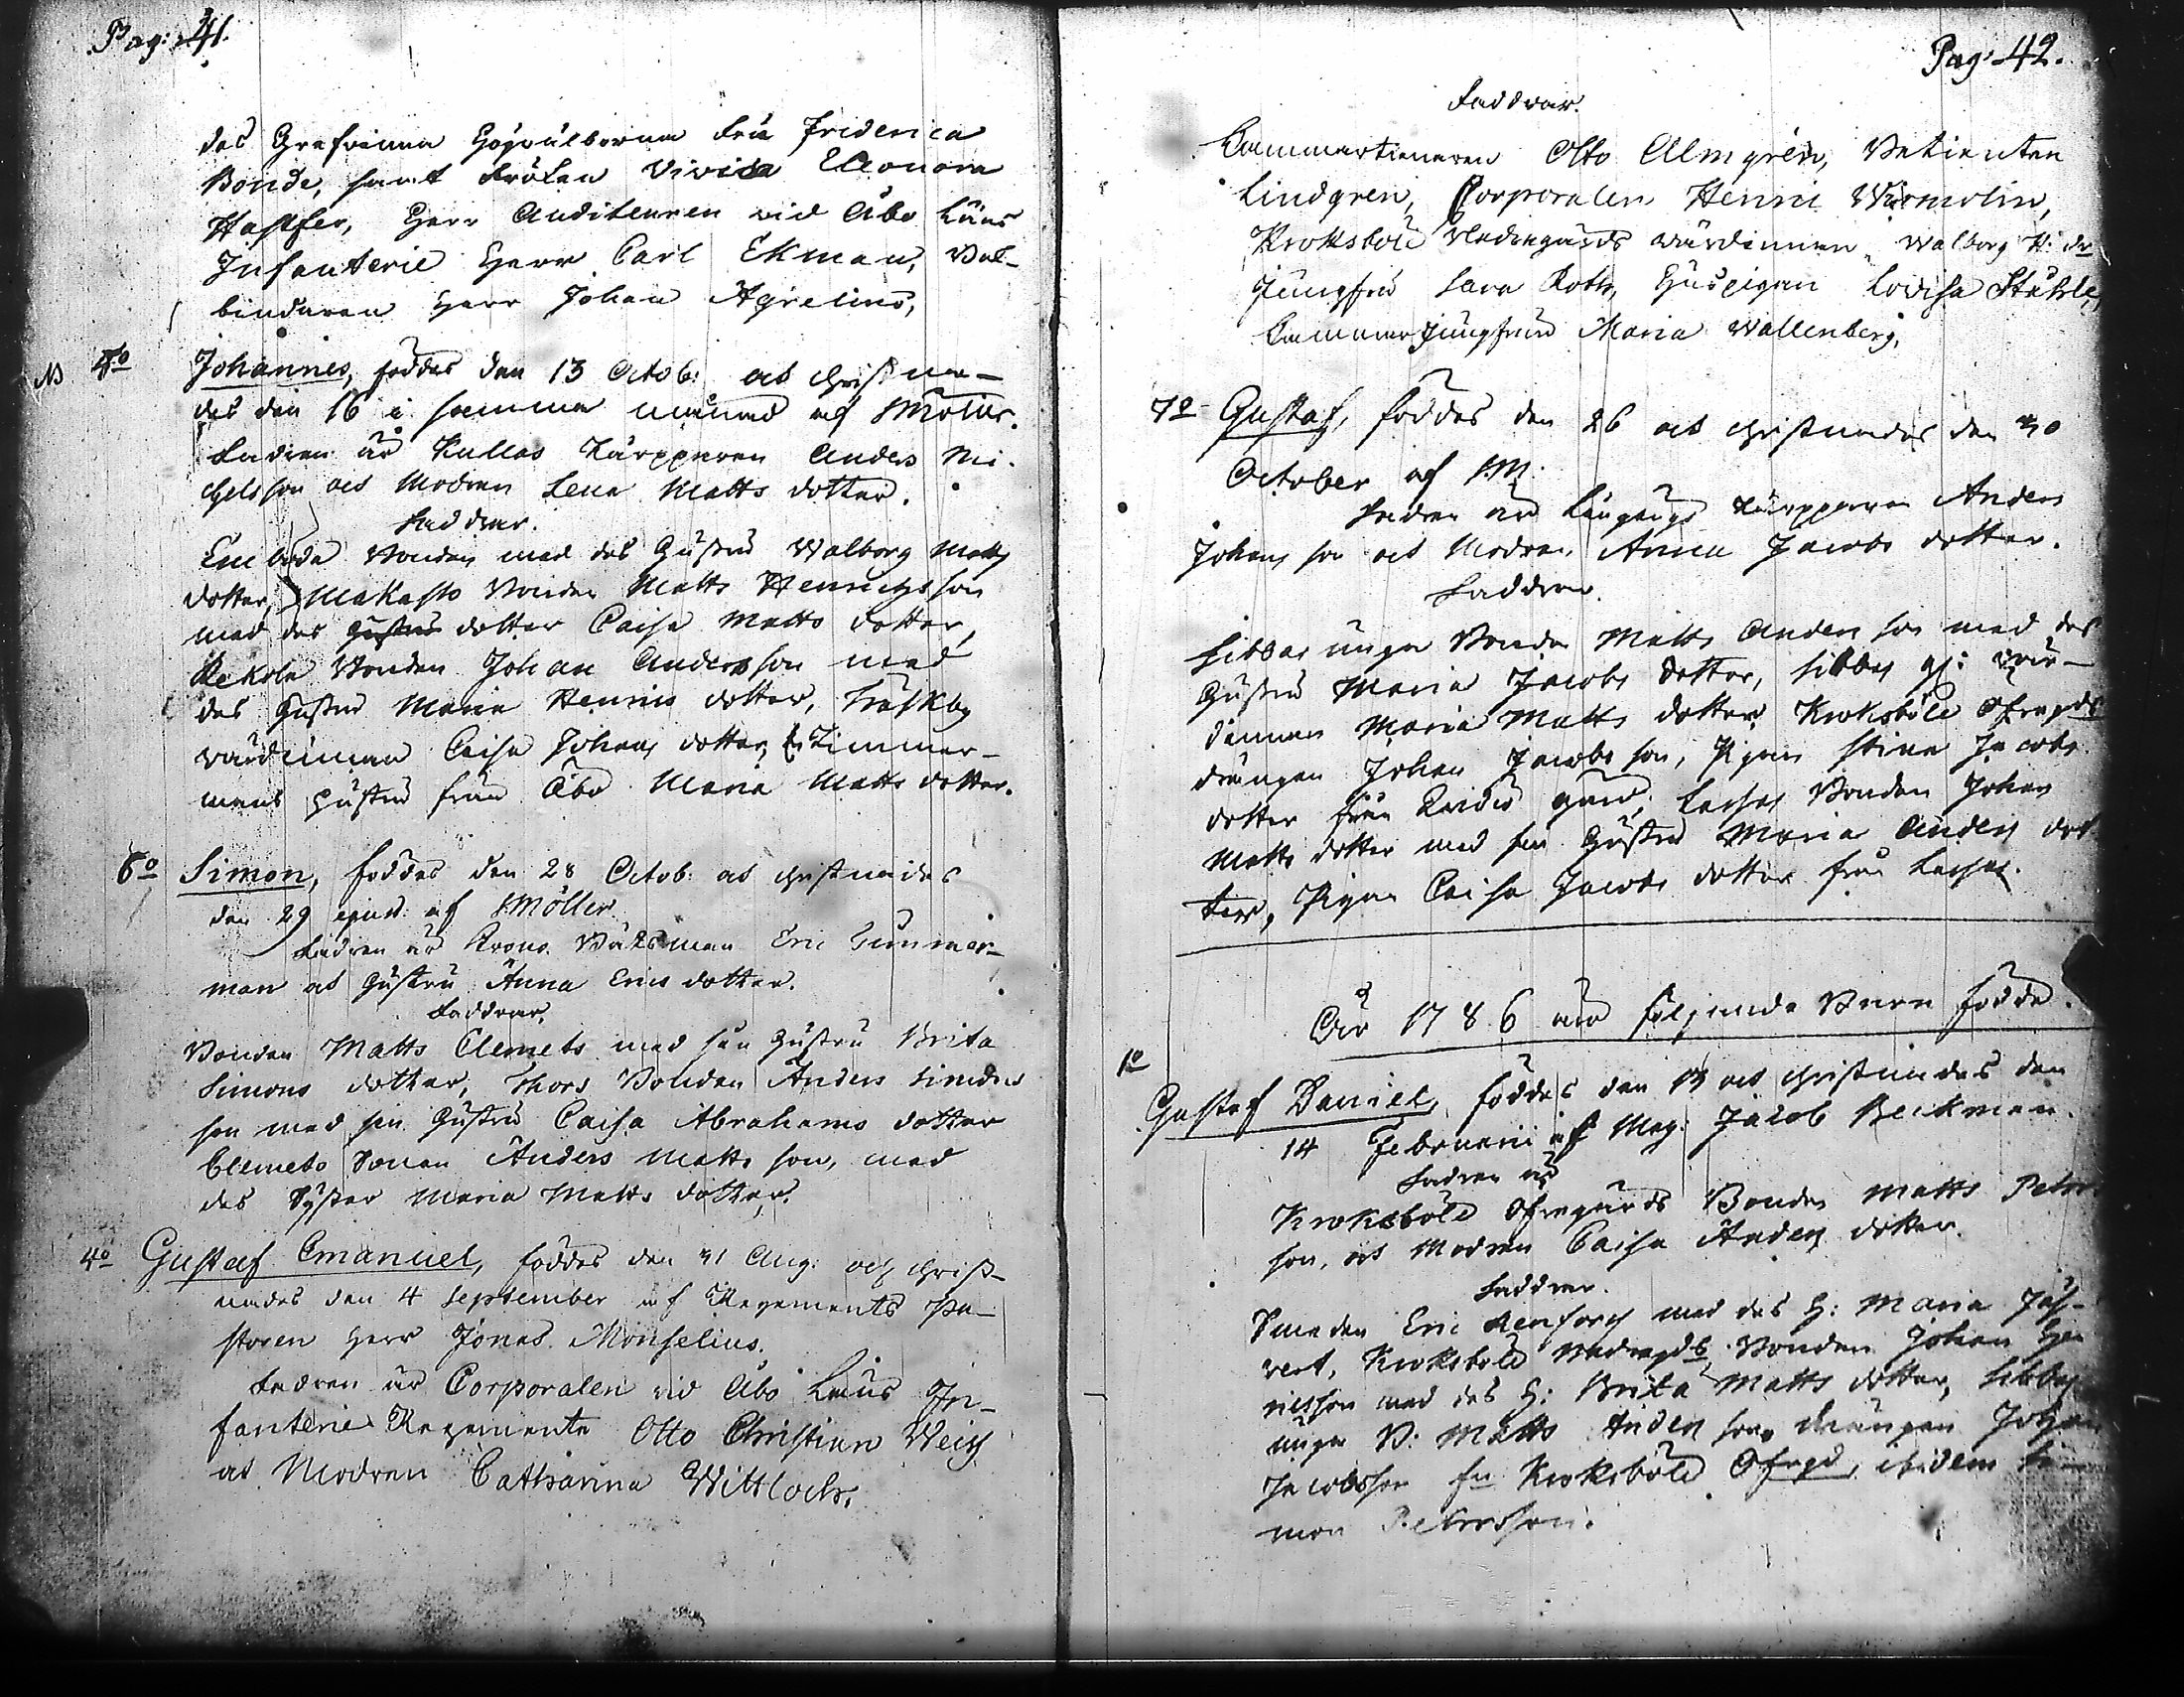 Pag: 41.
des Grefvinna Högvälborna Fru Friderica
Bonde, samt Fröken Vivica Eleonora
Hastfer, Herr Auditeuren vid Åbo Läns
Infanterie Herr Carl Ekman, Bok-
bindaren Herr Johan Agrelius,
NB Johannes, föddes den 13 Octob: ock christna-
des den 16 i samma månad af Möller.
Fadren är Kullas Torpparen Anders Mi-
chelsson ock Modren Lena Matts dotter.
Faddrar.
Bonden med des Hustru Walborg Matts
dotter, Makasto Bonden Matts Henrichsson
med des Hustru dotter Caisa Matts dotter,
Rekola Bonden Johan Andersson med
des Hustru Maria Henrics dotter, Träskby
värdinnan Caisa Johans dotter, Timmer-
mans Hustru från Åbo Maria Matts dotter.
6o Simon, föddes den 28 Octob: ock christnades
den 29 ejusd: af Möller.
Fadren är Krono Båtsman Eric Timmer-
man ock Hustru Anna Erics dotter.
Faddrar.
Bonden Matts Clemets med sin Hustru Brita
Simons dotter, Thors Bonden Anders Simons
son med sin Hustru Caisa Abrahams dotter
Clemets Sonen Anders Matts son, med
des Syster Maria Matts dotter.
4o Gustaf Emanuel, föddes den 31 Aug: och christ-
nades den 4 September af Regements Pa-
storen Herr Jonas Monselius.
Fadren är Corporalen vid Åbo Läns In-
fanterie Regemente Otto Christian Weis
ock Modren Catharina Wittlock.
Pag: 42.
Faddrar.
Cammartienaren Otto Almgrén, Betienten
Lindgren, Corporalen Henric
Kroksböle Nedregårds värdinnan Walborg H: dr
Jungfru Sara Roth, Huspigan Lovisa Ståhle,
Cammar Jungfrun Maria Wallenberg.
7o Gustaf, föddes den 26 ock christnades den 30
October af M.
Fadren är Långängs Torpparen Anders
Johans son ock Modren Anna Jacobs dotter.
Faddrar.
Sibbas unga Bonden Matts Anders son med des
Hustru Maria Jacobs dotter, Sibbas gl: vär-
dinnan Maria Matts dotter, Kroksböle Öfregds
drängen Johan Jacobs son, Pigan Stina Jacobs
dotter från gård, Lassas Bonden Johan
Matts dotter med sin Hustru Maria Anders dot-
ter, Pigan Caisa Jacobs dotter från Lassas.
År 1786 äro följande Barn födde.
1o
Gustaf Daniel, föddes den 13 ock christnades den
14 Februarii af Mag: Jacob Beckman.
Fadren är
Kroksböle Öfregårds Bonden Matts Peters
son, ock Modren Caisa Anders dotter.
Faddrar.
Smeden Eric Renfors med des H: Maria
Kroksböle Nedregds Bonden Johan Hen
ricsson med des H: Brita Matts dotter, Sibbas
unga B: Matts Anders son, drängen Johan
Jacobsson fr: Kroksböle Öfregd, ibidem Si-
mon Petersson.